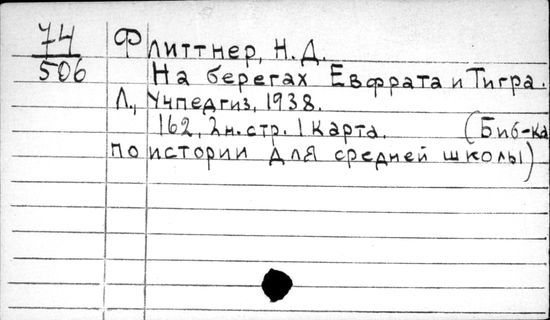 74
506
Флиттнер, Н.Д.
На берегах Евфрата и Тигра.
Л., Учпедгиз, 1938.
162, 2 н. стр. 1 карта. (Биб-ка
по истории для средней школы)